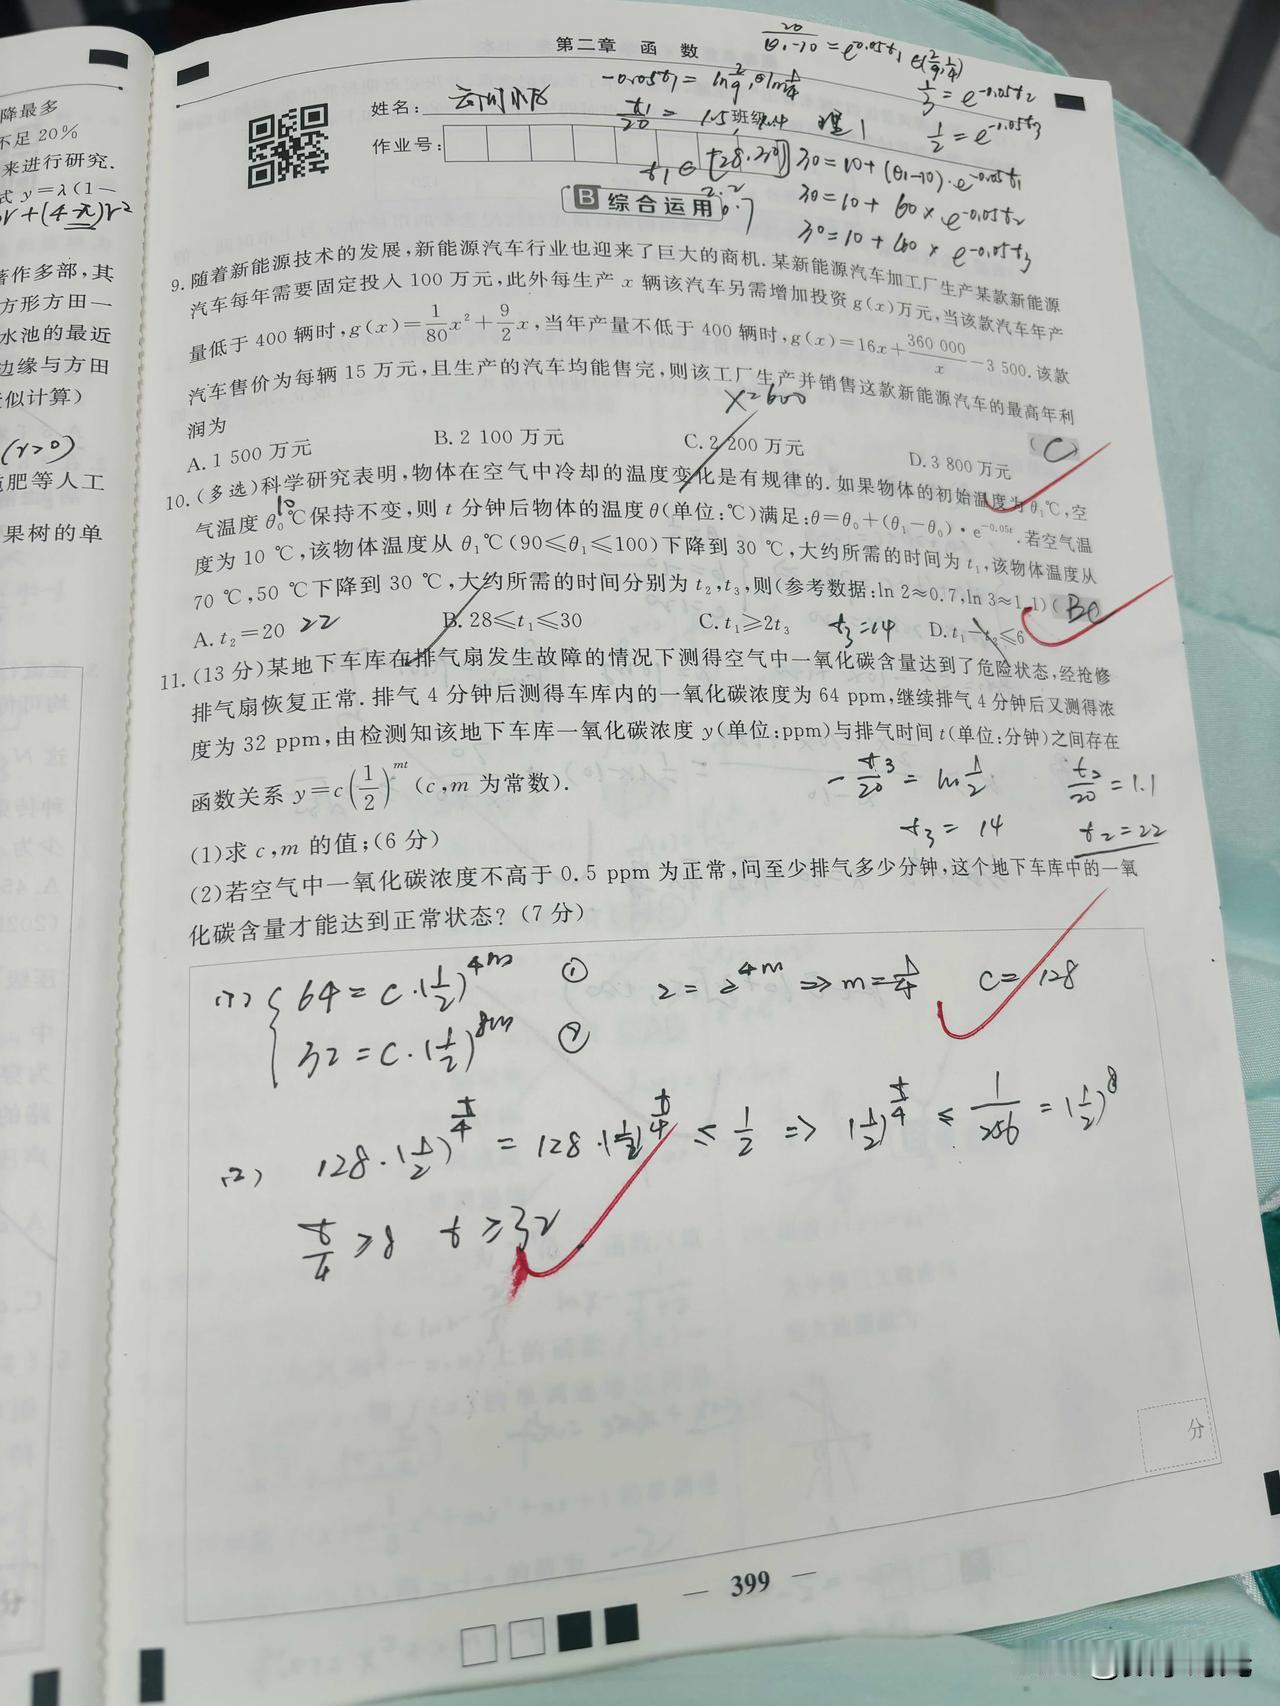 第二章 函 数
20/(θ₁-10) = e^0.05t₁ ∈(2/9, 1/4)
-0.05t₁ = ln 2/9, ln 1/4
1/3 = e^-0.05t₂
1/2 = e^-0.05t₃
姓名:
班级:
理1
作业号:
t₁ ∈ [28,30]
30=10+(θ₁-10)·e^-0.05t₁
30=10+ 60× e^-0.05t₂
30=10+40× e^-0.05t₃
B 综合运用
9. 随着新能源技术的发展,新能源汽车行业也迎来了巨大的商机.某新能源汽车加工厂生产某款新能源
汽车每年需要固定投入 100 万元,此外每生产 x 辆该汽车另需增加投资 g(x)万元,当该款汽车年产
量低于 400 辆时,g(x)=1/80x²+9/2x,当年产量不低于 400 辆时,g(x)=16x+360 000/x-3 500.该款
汽车售价为每辆 15 万元,且生产的汽车均能售完,则该工厂生产并销售这款新能源汽车的最高年利
润为
x=600
( C )
A. 1 500 万元 B. 2 100 万元 C. 2 200 万元 D. 3 800 万元
10. (多选)科学研究表明,物体在空气中冷却的温度变化是有规律的.如果物体的初始温度为θ₁℃,空
10
气温度 θ₀℃保持不变,则 t 分钟后物体的温度 θ(单位:℃)满足:θ=θ₀+(θ₁-θ₀)·e^-0.05t.若空气温
度为 10 ℃,该物体温度从 θ₁℃(90≤θ₁≤100)下降到 30 ℃,大约所需的时间为 t₁,该物体温度从
70 ℃,50 ℃下降到 30 ℃,大约所需的时间分别为 t₂,t₃,则(参考数据:ln 2≈0.7,ln 3≈1.1) ( BC
A. t₂=20 22 B. 28≤t₁≤30 C. t₁≥2t₃ t₃=14 D. t₁-t₂≤6
11. (13 分)某地下车库在排气扇发生故障的情况下测得空气中一氧化碳含量达到了危险状态,经抢修
排气扇恢复正常.排气 4 分钟后测得车库内的一氧化碳浓度为 64 ppm,继续排气 4 分钟后又测得浓
度为 32 ppm,由检测知该地下车库一氧化碳浓度 y(单位:ppm)与排气时间 t(单位:分钟)之间存在
函数关系 y=c(1/2)^mt (c,m 为常数).
-t₃/20 = ln 1/2 t₂/20 = 1.1
(1)求 c,m 的值;(6 分)
t₃ = 14 t₂=22
(2)若空气中一氧化碳浓度不高于 0.5 ppm 为正常,问至少排气多少分钟,这个地下车库中的一氧
化碳含量才能达到正常状态? (7 分)
(1) { 64=C·(1/2)^4m ① 2=2^4m ⇒ m=1/4 C=128
32=C·(1/2)^8m ②
(2) 128·(1/2)^t/4 = 128·(1/2)^t/4 ≤ 1/2 ⇒ (1/2)^t/4 ≤ 1/256 = (1/2)^8
t/4 ≥8 t≥32
分
— 399 —
降最多
不足 20%
来进行研究.
式 y=λ(1-
r+(4-π)r²
著作多部,其
方形方田一
水池的最近
边缘与方田
似计算)
(r>0)
施肥等人工
果树的单